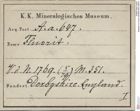 K. K. Mineralogisches Museum.
Acq. Post: A. a. 647.
Name: Fluorit
V. d. N. 1769. (5) M. 351.
Fundort: Derbyshire, England